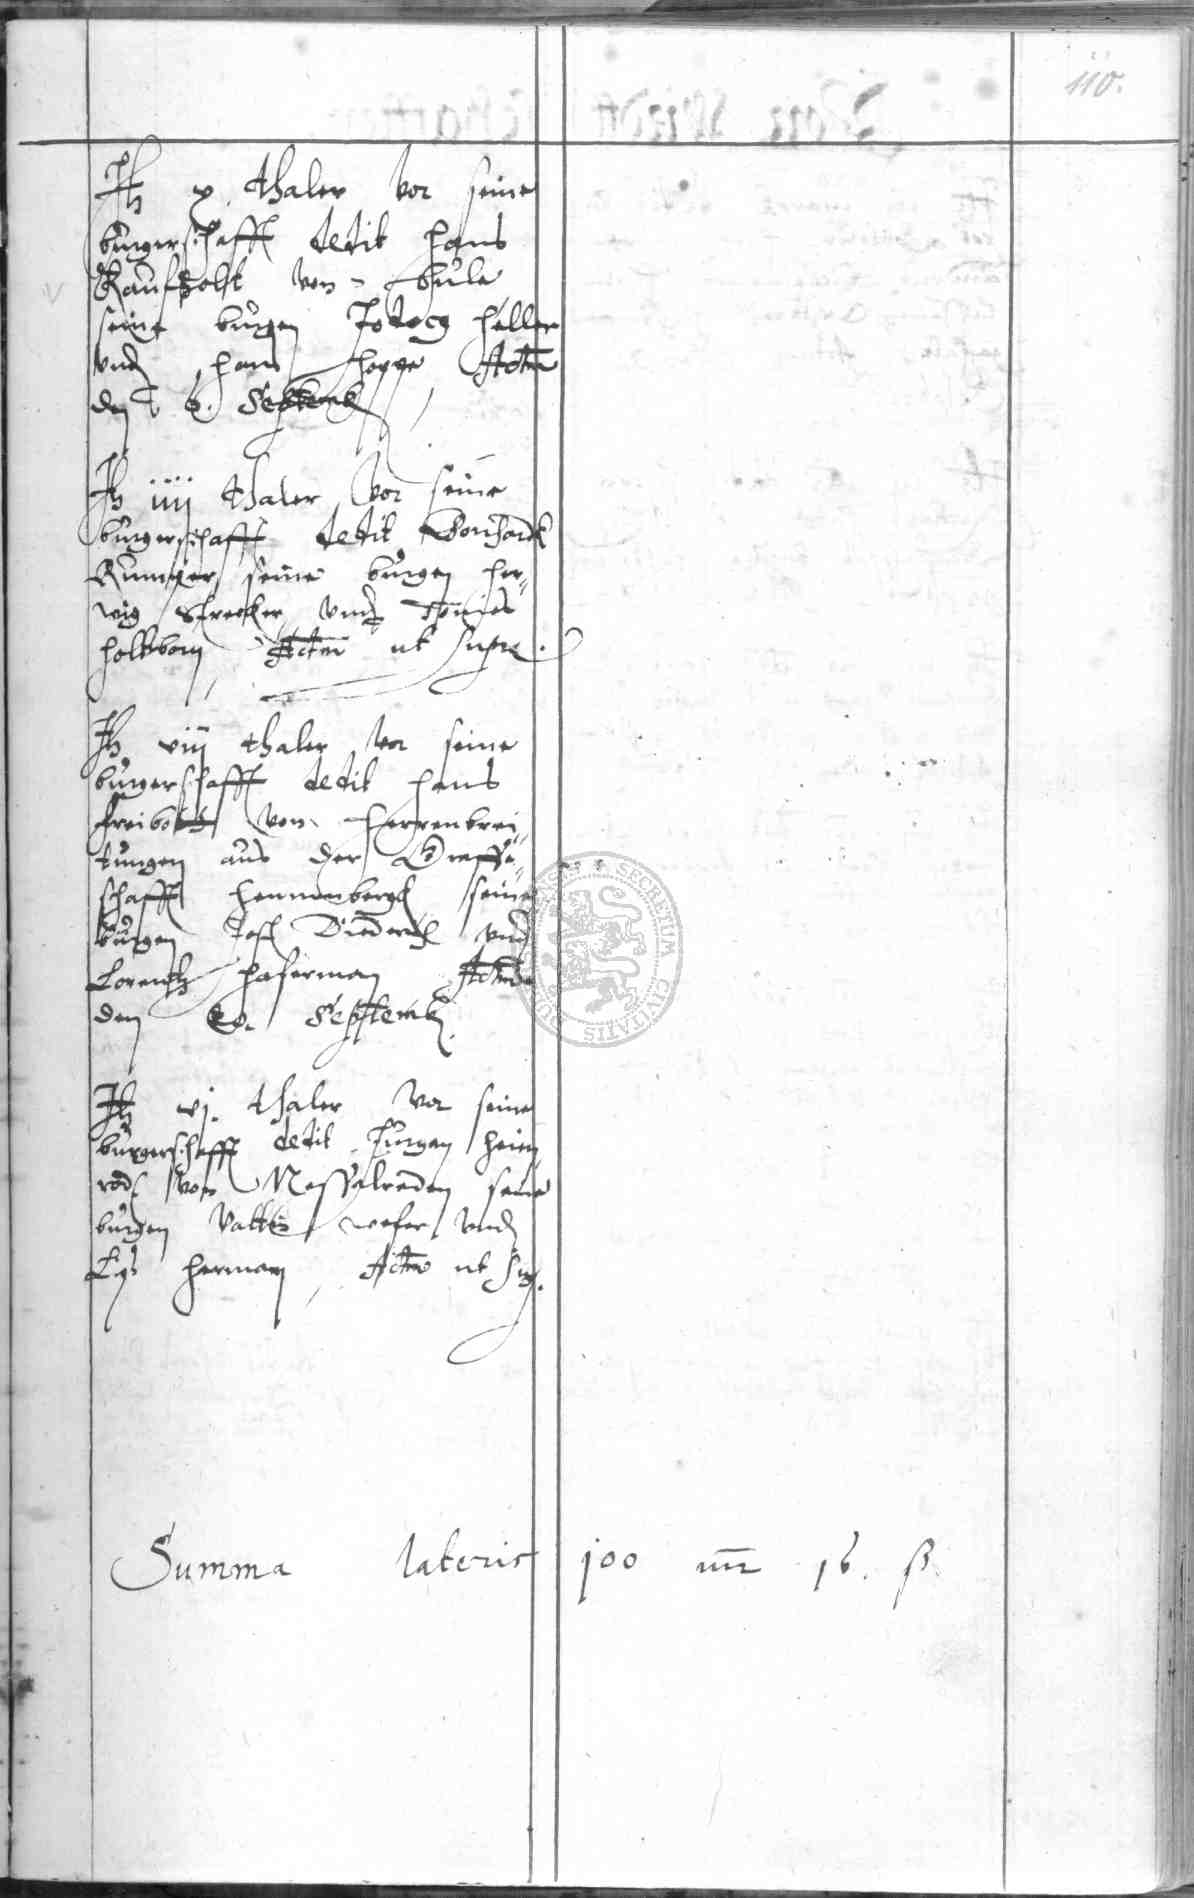 110.
It x thaler vor seine
burgerschafft dedit Hans
Raufholt von Bula
seine burgen Jodocg Heller
vnd Hans Hoppe Actm
den 6. Septemb
It iiij thaler vor seine
burgerschafft dedit
seine burgen Her-
wig Strecker vnd Tonies
Holtborn Actm ut supra.
It viij thaler vor seine
burgerschafft dedit Hans
Freibott von Herrenbrei-
tungen aus der Graffe-
schafft Hennenbergk seine
burgen Jost Diederich vnd
Lorentz Haferman Actm
den 20. Septemb.
It vj. thaler vor seine
burgerschafft dedit Jurgen Heien
rodt von seine
burgen Valtin wefer vnd
herman Actm ut sup.
Summa lateris 100 mr 16. ß
SECRETUM CIVITATIS